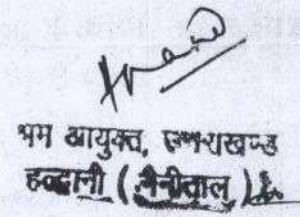 श्रम आयुक्त, उत्तराखण्ड
हल्द्वानी (नैनीताल)